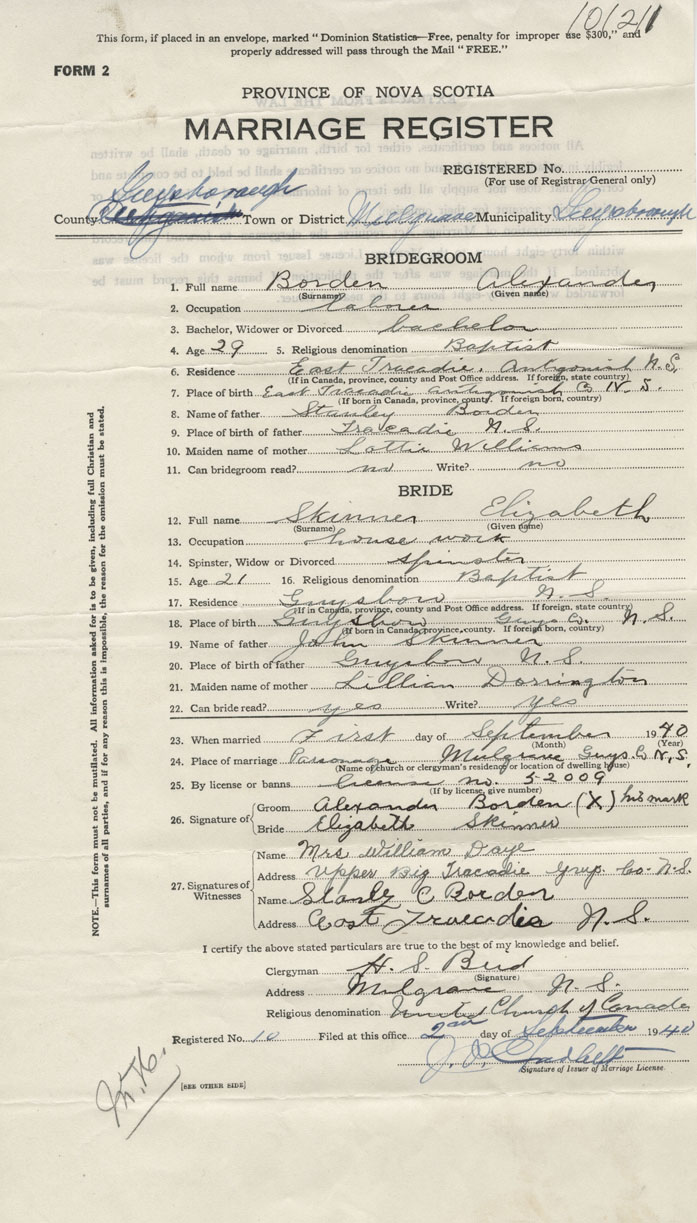 10211
This form, if placed in an envelope, marked “Dominion Statistics—Free, penalty for improper use $300,” and
properly addressed will pass through the Mail “FREE.”
FORM 2
PROVINCE OF NOVA SCOTIA
MARRIAGE REGISTER
REGISTERED No.
(For use of Registrar-General only)
Guysborough
County Antigonish Town or District Mulgrave Municipality Guysborough
BRIDEGROOM
1. Full name Borden Alexander
(Surname) (Given name)
2. Occupation laborer
3. Bachelor, Widower or Divorced bachelor
4. Age 29 5. Religious denomination Baptist
6. Residence East Tracadie, Antigonish N.S.
(If in Canada, province, county and Post Office address. If foreign, state country)
7. Place of birth East Tracadie Antigonish Co N.S.
(If born in Canada, province, county. If foreign born, country)
8. Name of father Stanley Borden
9. Place of birth of father Tracadie N.S.
10. Maiden name of mother Lottie Williams
11. Can bridegroom read? no Write? no
BRIDE
12. Full name Skinner Elizabeth
(Surname) (Given name)
13. Occupation house work
14. Spinster, Widow or Divorced spinster
15. Age 21 16. Religious denomination Baptist
17. Residence Guysboro N.S.
(If in Canada, province, county and Post Office address. If foreign, state country)
18. Place of birth Guysboro Guys Co. N.S.
(If born in Canada, province, county. If foreign born, country)
19. Name of father John Skinner
20. Place of birth of father Guysboro N.S.
21. Maiden name of mother Lillian Dorrington
22. Can bride read? yes Write? yes
23. When married First day of September 1940
(Month) (Year)
24. Place of marriage Parsonage Mulgrave Guys Co N.S.
(Name of church or clergyman's residence or location of dwelling house)
25. By license or banns license no. 52009
(If by license, give number)
26. Signature of
Groom Alexander Borden (X) his mark
Bride Elizabeth Skinner
27. Signatures of Witnesses
Name Mrs William Daye
Address Upper Big Tracadie Guys. Co. N.S.
Name Stanly C Borden
Address East Tracadie N.S.
I certify the above stated particulars are true to the best of my knowledge and belief.
Clergyman H. S. Bird
(Signature)
Address Mulgrave N.S.
Religious denomination United Church of Canada
Registered No. 10 Filed at this office 2nd day of September 1940
Signature of Issuer of Marriage License.
[SEE OTHER SIDE]
NOTE.—This form must not be mutilated. All information asked for is to be given, including full Christian and
surnames of all parties, and if for any reason this is impossible, the reason for the omission must be stated.